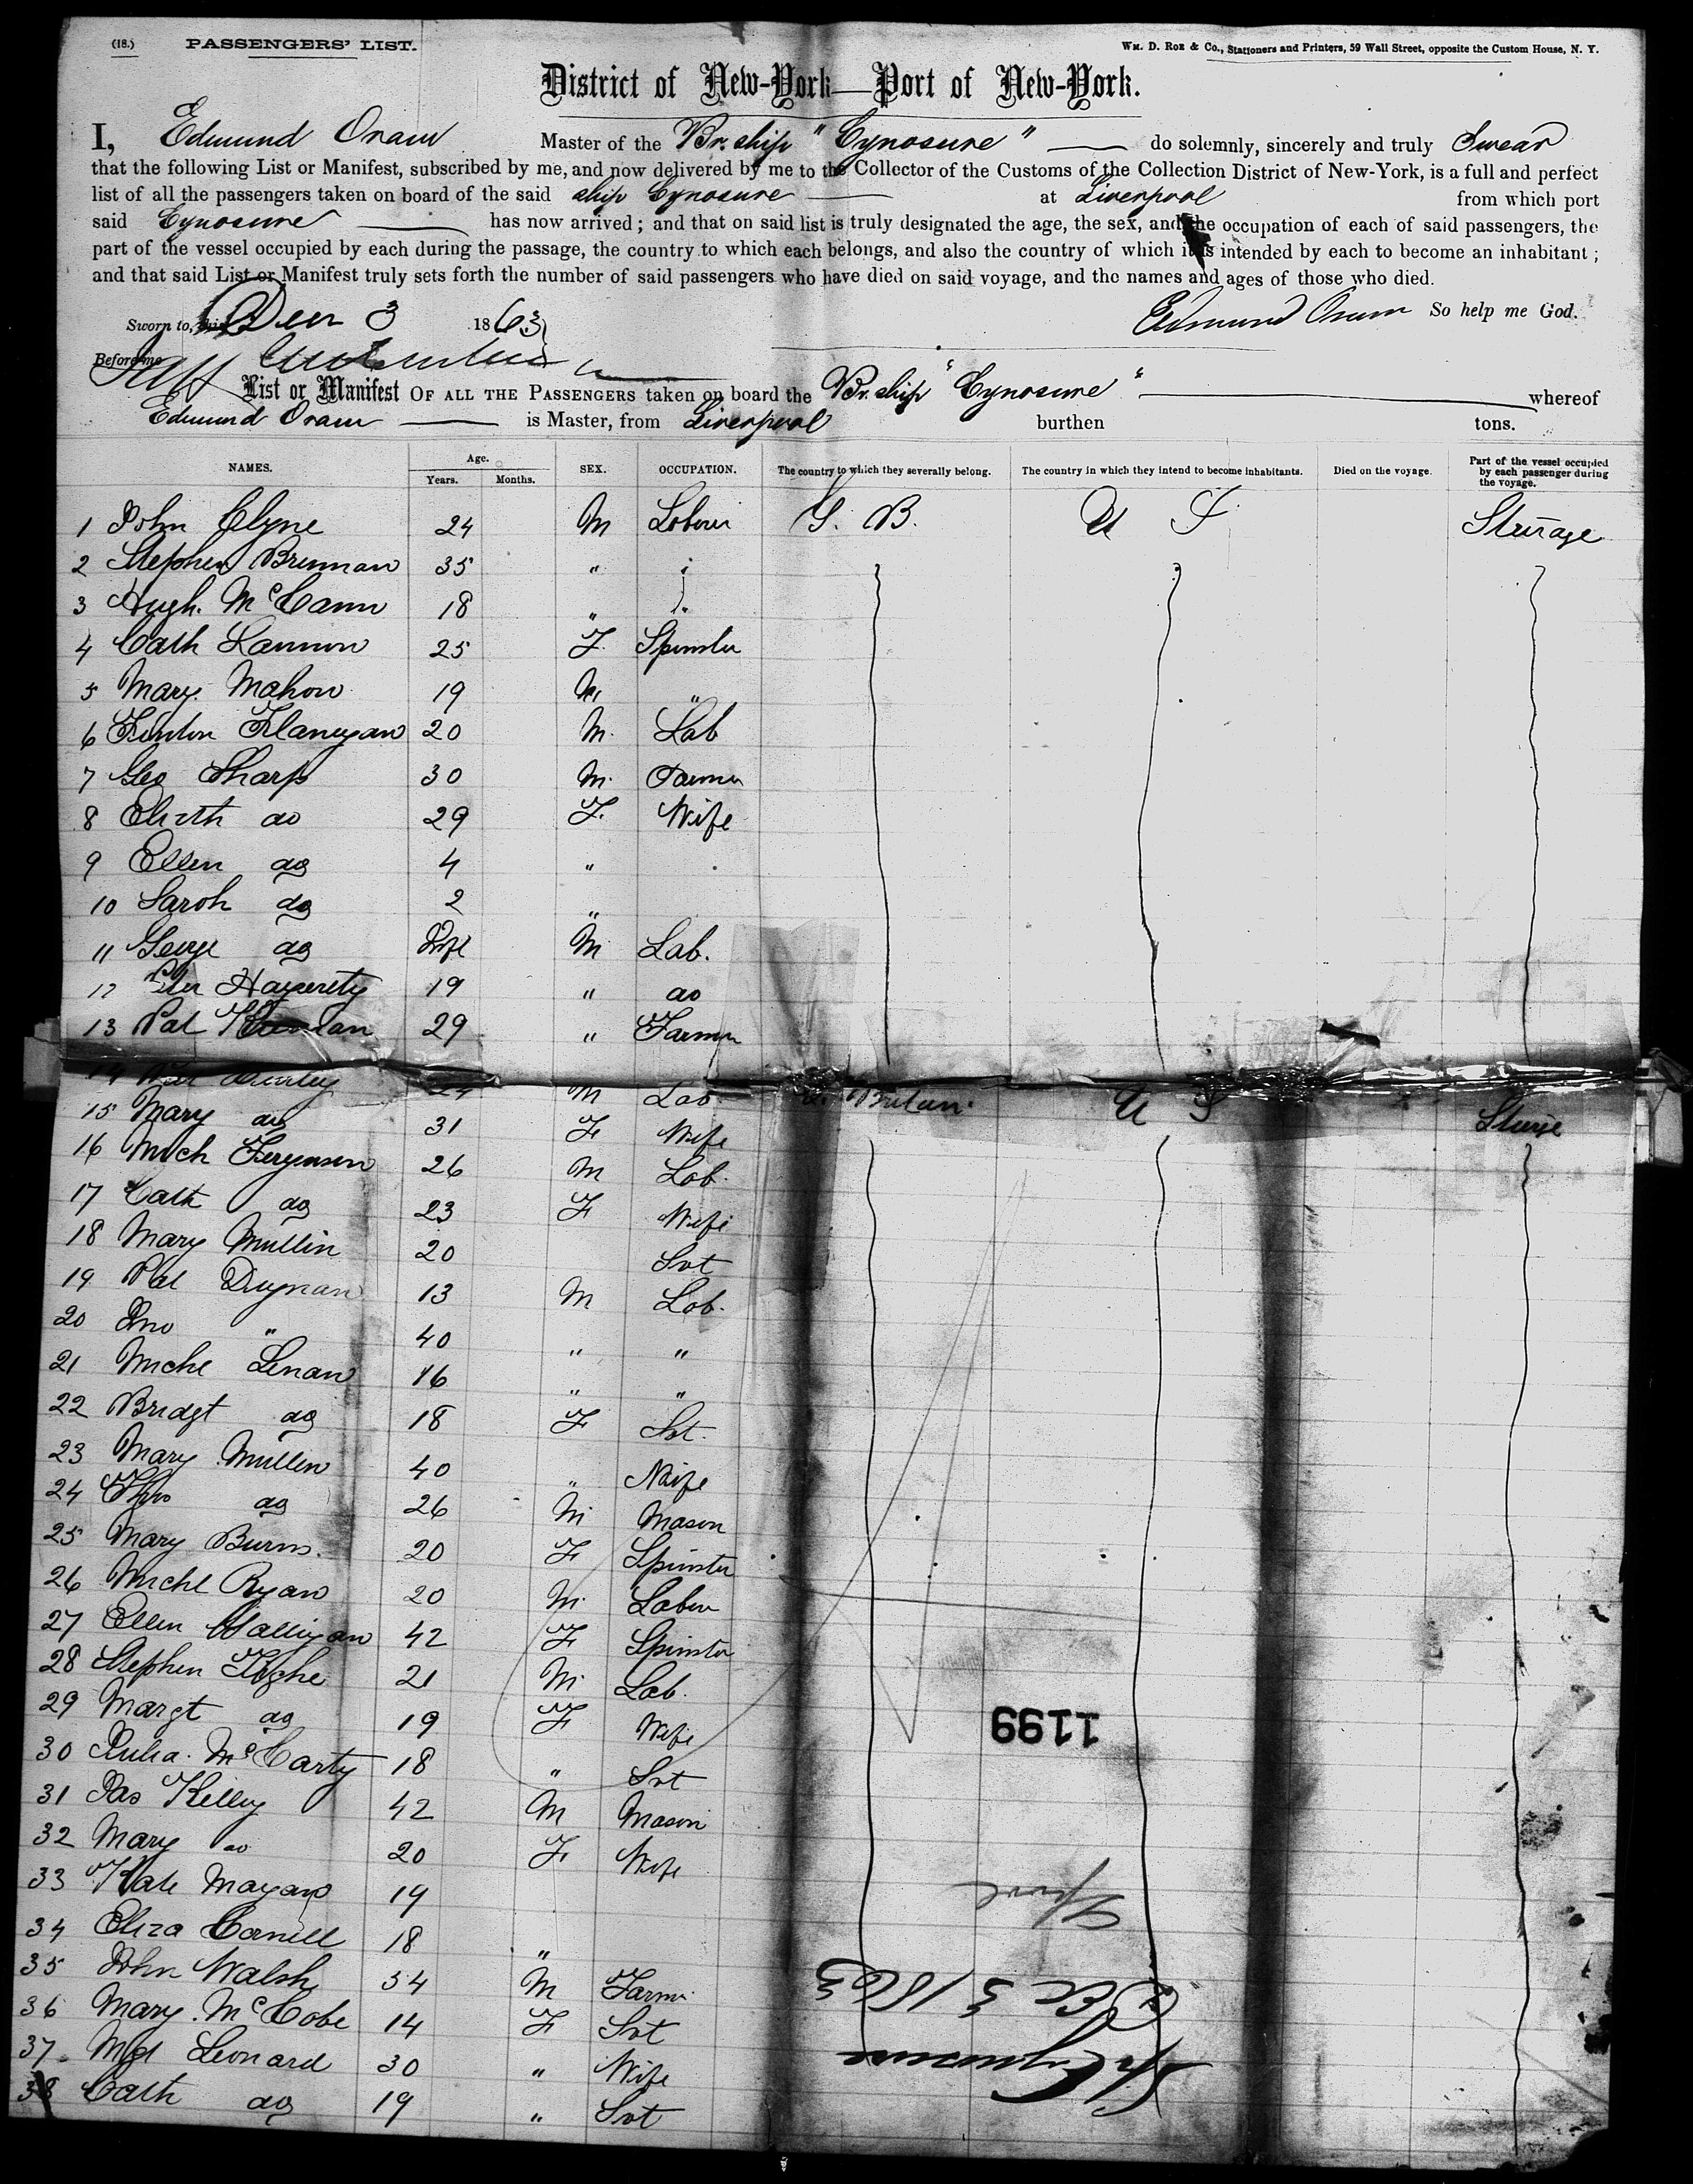 (18.) PASSENGERS' LIST. Wm. D. Roe & Co., Stationers and Printers, 59 Wall Street, opposite the Custom House, N. Y.
District of New-York—Port of New-York.
I, Edmund Oram Master of the Br. ship "Cynosure" do solemnly, sincerely and truly Swear
that the following List or Manifest, subscribed by me, and now delivered by me to the Collector of the Customs of the Collection District of New-York, is a full and perfect
list of all the passengers taken on board of the said ship Cynosure at Liverpool from which port
said Cynosure has now arrived; and that on said list is truly designated the age, the sex, and the occupation of each of said passengers, the
part of the vessel occupied by each during the passage, the country to which each belongs, and also the country of which it is intended by each to become an inhabitant;
and that said List or Manifest truly sets forth the number of said passengers who have died on said voyage, and the names and ages of those who died.
Sworn to, this Decr 3 1863 Edmund Oram So help me God.
Before me
List or Manifest OF ALL THE PASSENGERS taken on board the Br. ship "Cynosure" whereof
Edmund Oram is Master, from Liverpool burthen tons.
NAMES. Age. Years. Months. SEX. OCCUPATION. The country to which they severally belong. The country in which they intend to become inhabitants. Died on the voyage. Part of the vessel occupied by each passenger during the voyage.
1 John Clyne 24 M Laborer G. B. U S Steerage
2 Stephen Brennan 35 "
3 Hugh McCann 18 " "
4 Cath Lannon 25 F. Spinster
5 Mary Mahon 19 "
6 Finton Flanigan 20 M. Lab
7 Geo Sharp 30 M. Farmer
8 Elizth do 29 F. Wife
9 Ellen do 4 "
10 Sarah do 2 "
11 George do Inft M Lab.
12 Peter Hagerety 19 " do
13 Pat 29 " Farmer
14 M Lab. G. Britain U S Steerge
15 Mary do 31 F Wife
16 Mich Ferguson 26 M Lab.
17 Cath do 23 F Wife
18 Mary Mullin 20 Svt
19 Pat Dignan 13 M Lab.
20 Jno " 40 " "
21 Michl Lenan 16 " "
22 Bridgt do 18 F Svt.
23 Mary Mullen 40 " Wife
24 Thos do 26 M Mason
25 Mary Burns. 20 F Spinster
26 Michl Ryan 20 M. Labor
27 Ellen Halligan 42 F Spinster
28 Stephen Tighe 21 M. Lab.
29 Margt do 19 F Wife
30 Julia McCarty 18 " Svt
31 Jas Kelly 42 M Mason
32 Mary do 20 F. Wife
33 Kate Mayan 19
34 Eliza Cornell 18 "
35 John Walsh 54 M Farmr
36 Mary McCobe 14 F Svt
37 Mgt Leonard 30 " Wife
38 Cath do 19 " Svt
1199
Lpool
Dec 3 1863
Sh Cynosure